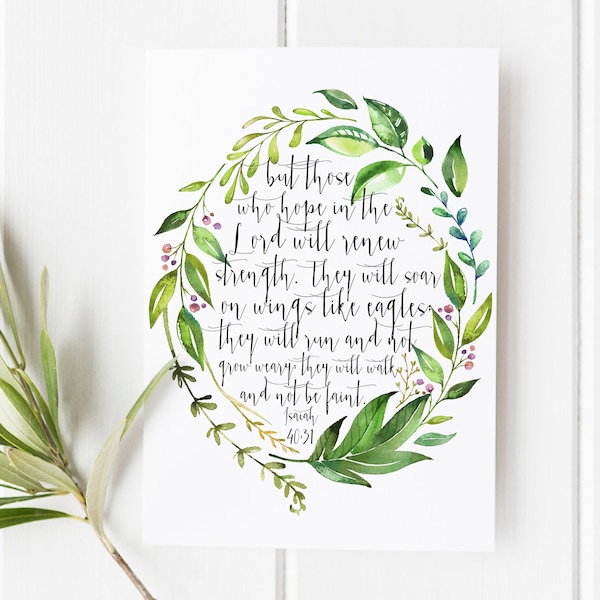 but those
who hope in the
Lord will renew
strength. They will soar
on wings like eagles;
they will run and not
grow weary, they will walk
and not be faint.
Isaiah
40:31